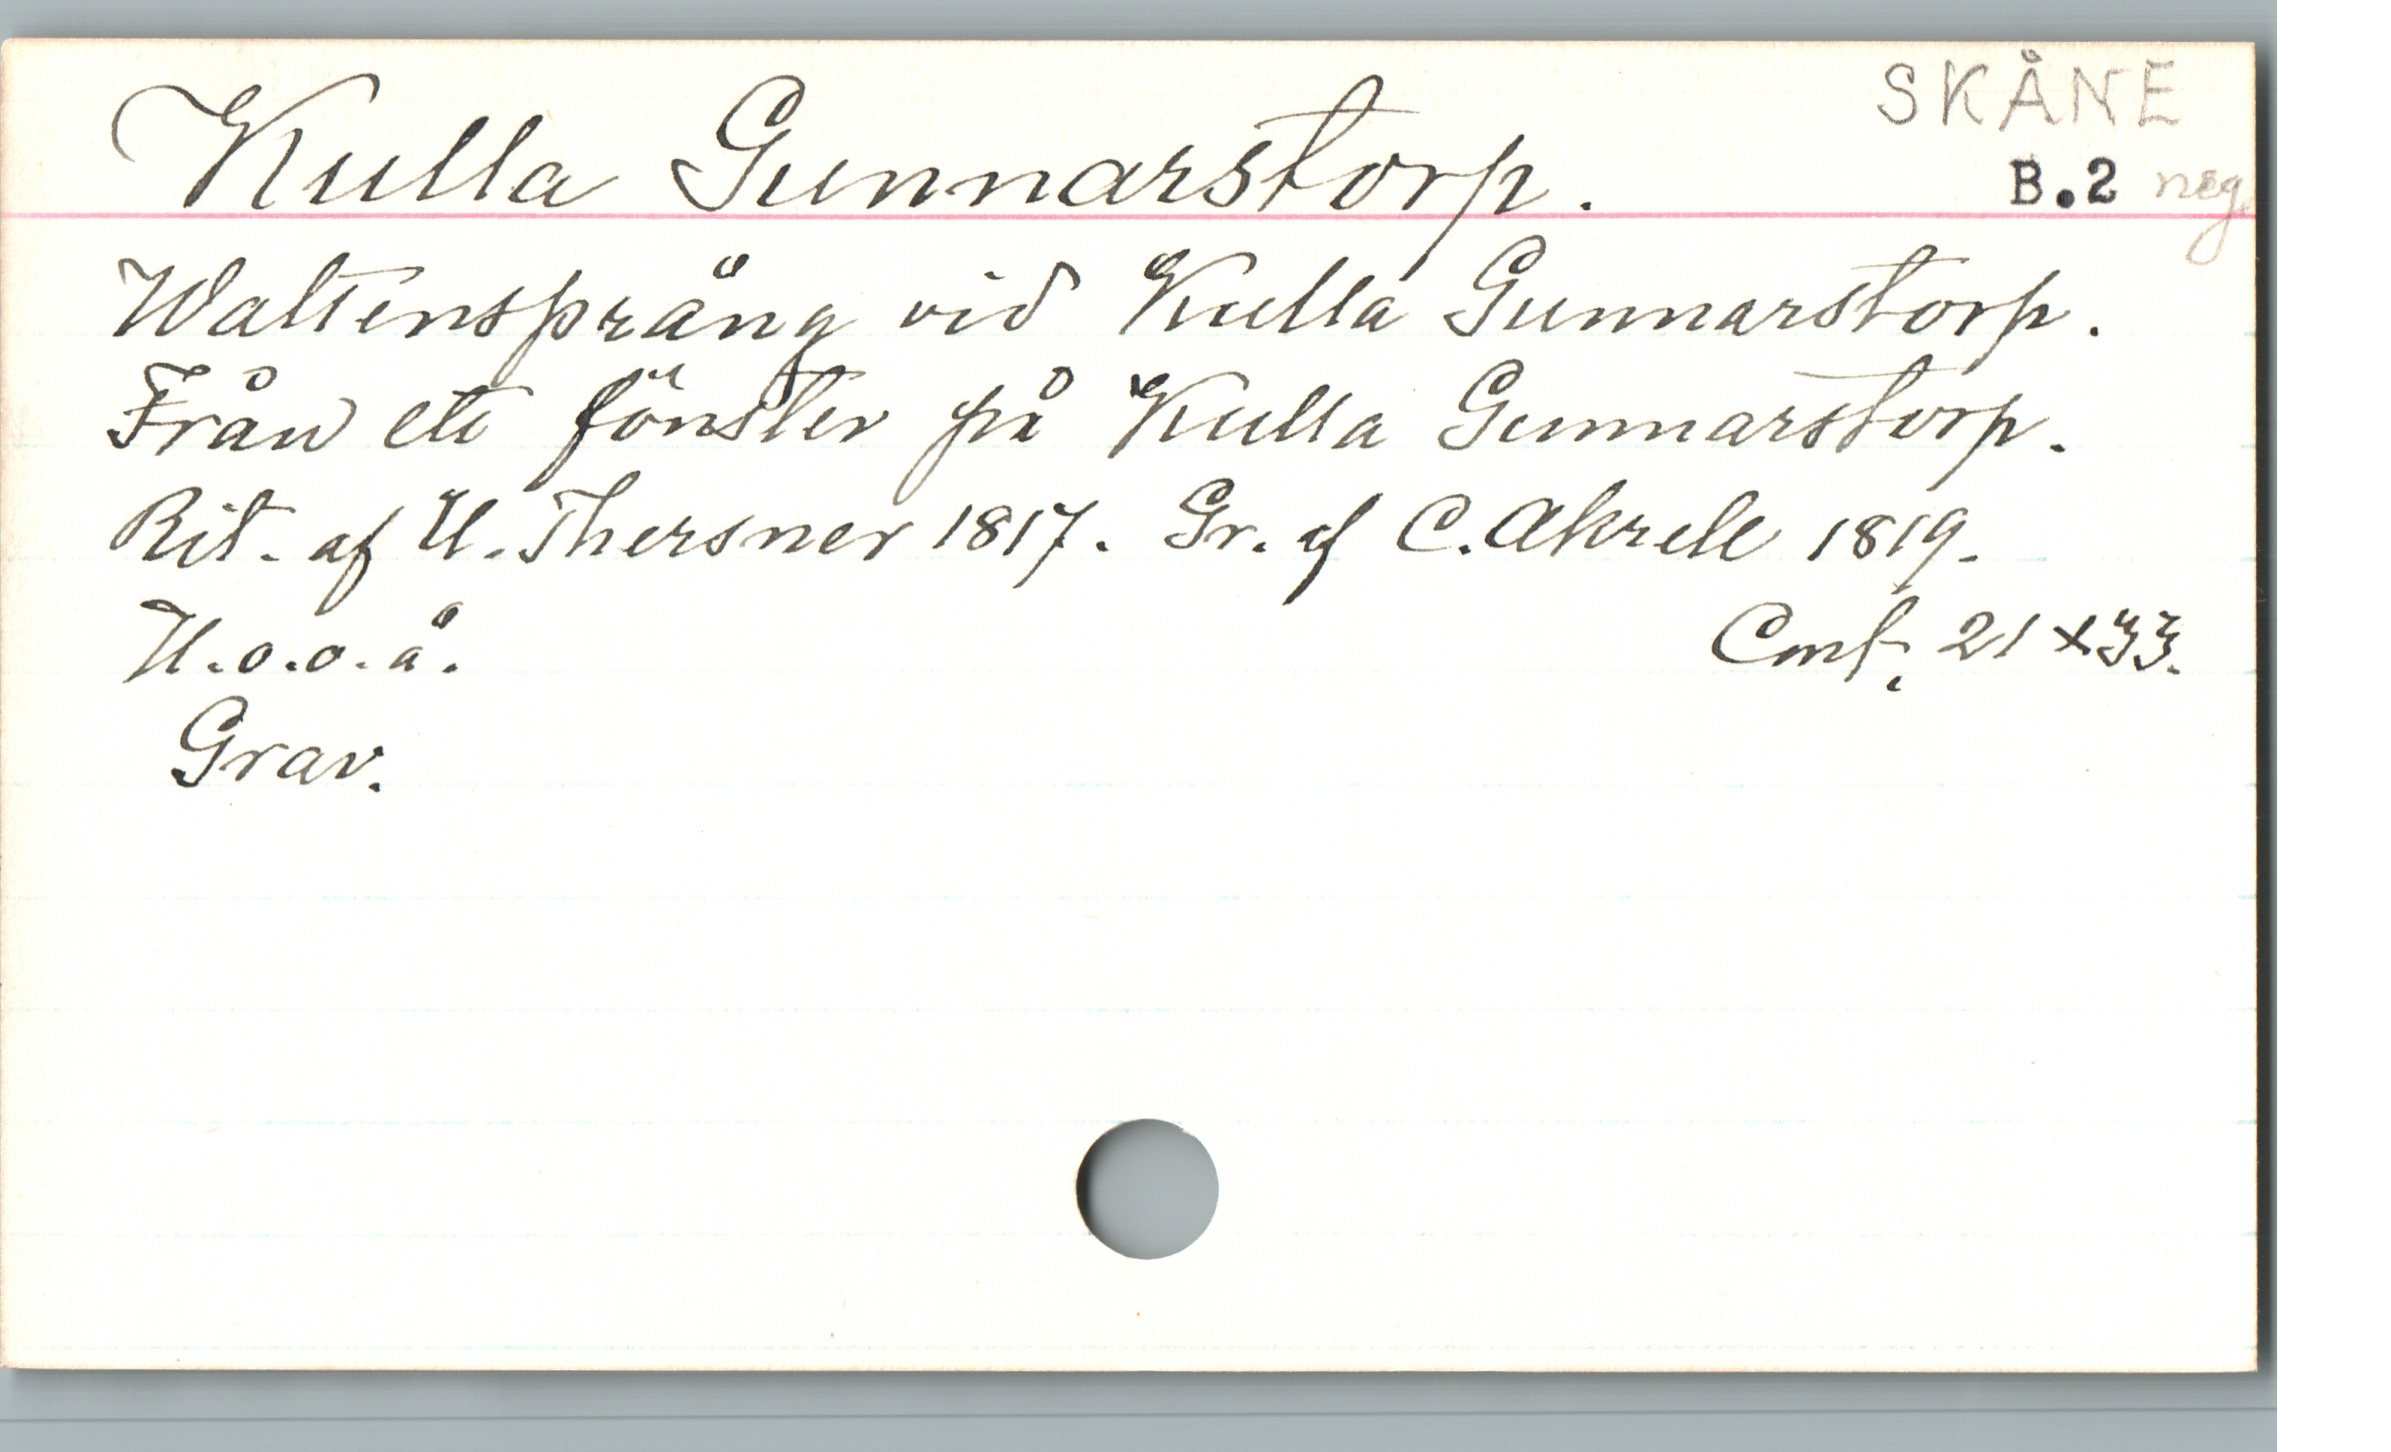 SKÅNE
Kulla Gunnarstorp.
B.2 neg
Wattensprång vid Kulla Gunnarstorp.
Från ett fönster på Kulla Gunnarstorp.
Rit. af U. Thersner 1817. Gr. af C. Akrell 1819.
U.o.o.å. Cmf. 21 x 33.
Grav.